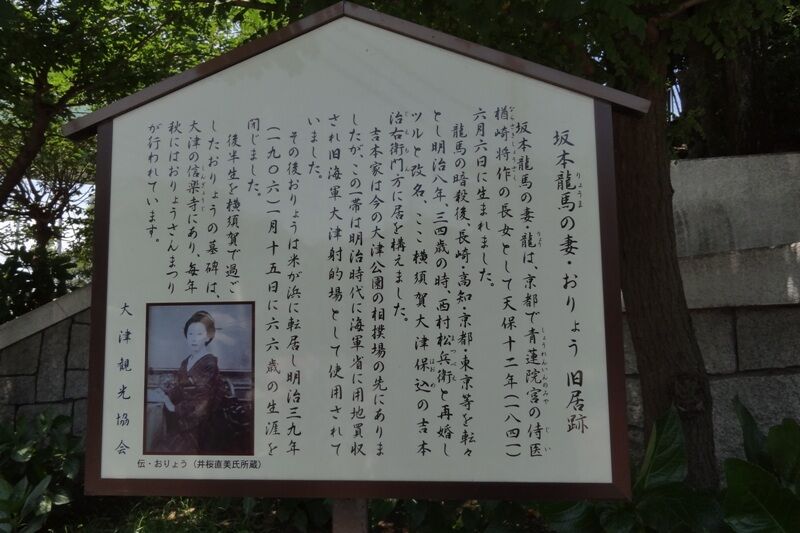 坂本龍馬の妻・おりょう 旧居跡
坂本龍馬の妻・龍は、京都で青蓮院宮の侍医
楢崎将作の長女として天保十二年(一八四一)
六月六日に生まれました。
龍馬の暗殺後、長崎・高知・京都・東京等を転々
とし明治八年、三四歳の時、西村松兵衛と再婚し
ツルと改名、ここ横須賀大津保込の吉本
治右衛門方に居を構えました。
吉本家は今の大津公園の相撲場の先にありま
したが、この一帯は明治時代に海軍省に用地買収
され旧海軍大津射的場として使用されて
いました。
その後おりょうは米が浜に転居し明治三九年
(一九〇六)一月十五日に六六歳の生涯を
閉じました。
後半生を横須賀で過ご
したおりょうの墓碑は、
大津の信楽寺にあり、毎年
秋にはおりょうさんまつり
が行われています。
大津観光協会
伝・おりょう(井桜直美氏所蔵)